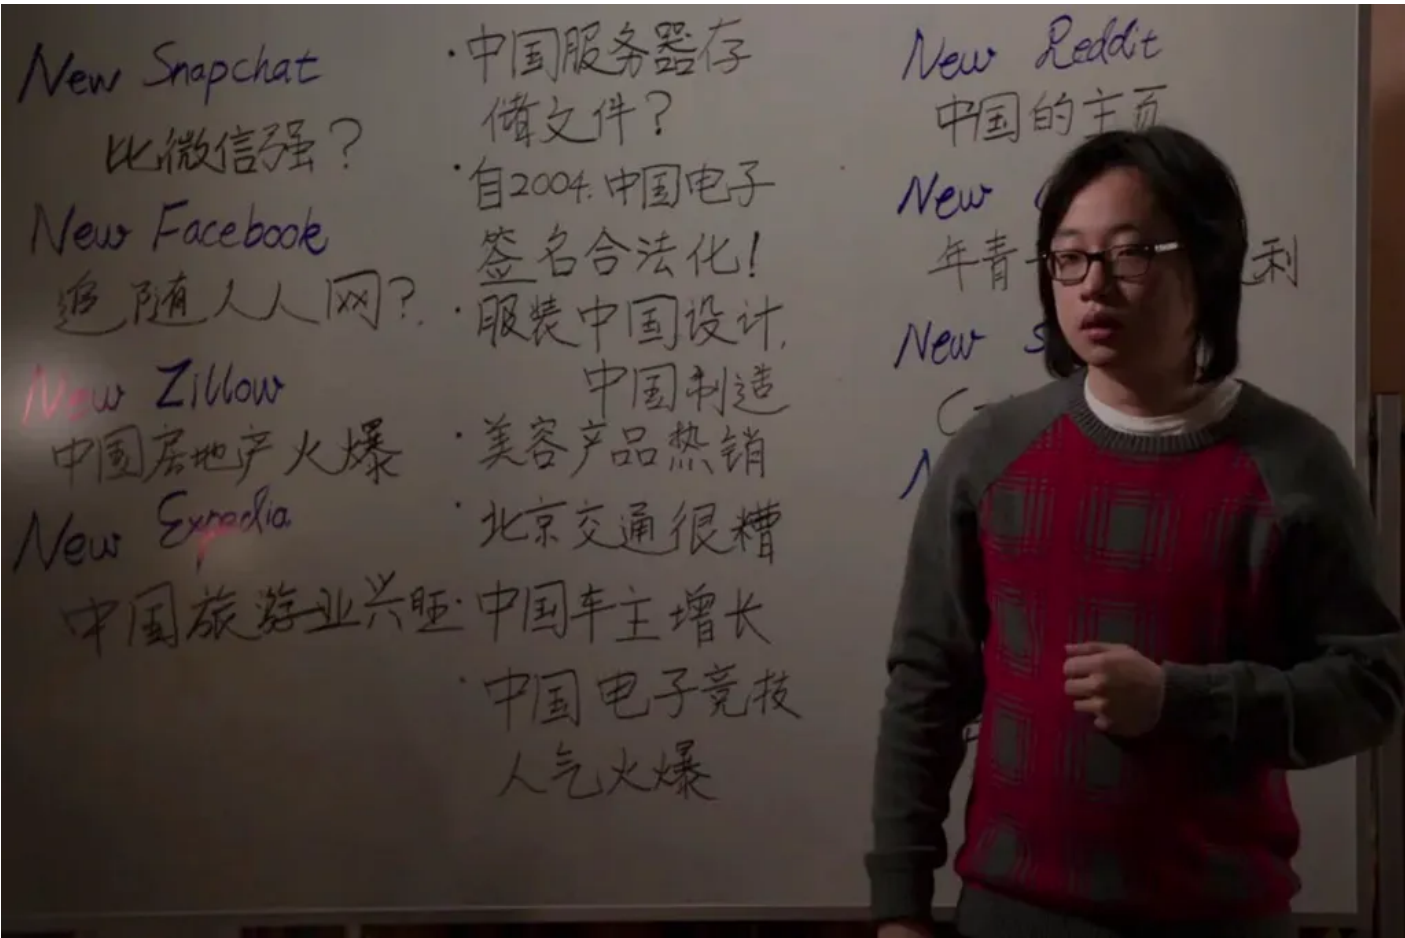 New Snapchat
比微信强？
New Facebook
追随人人网？
New Zillow
中国房地产火爆
New Expedia
中国旅游业兴旺
·中国服务器存
储文件？
·自2004.中国电子
签名合法化！
·服装中国设计，
中国制造
·美容产品热销
·北京交通很糟
·中国车主增长
·中国电子竞技
人气火爆
New Reddit
中国的主页
New
年青
New